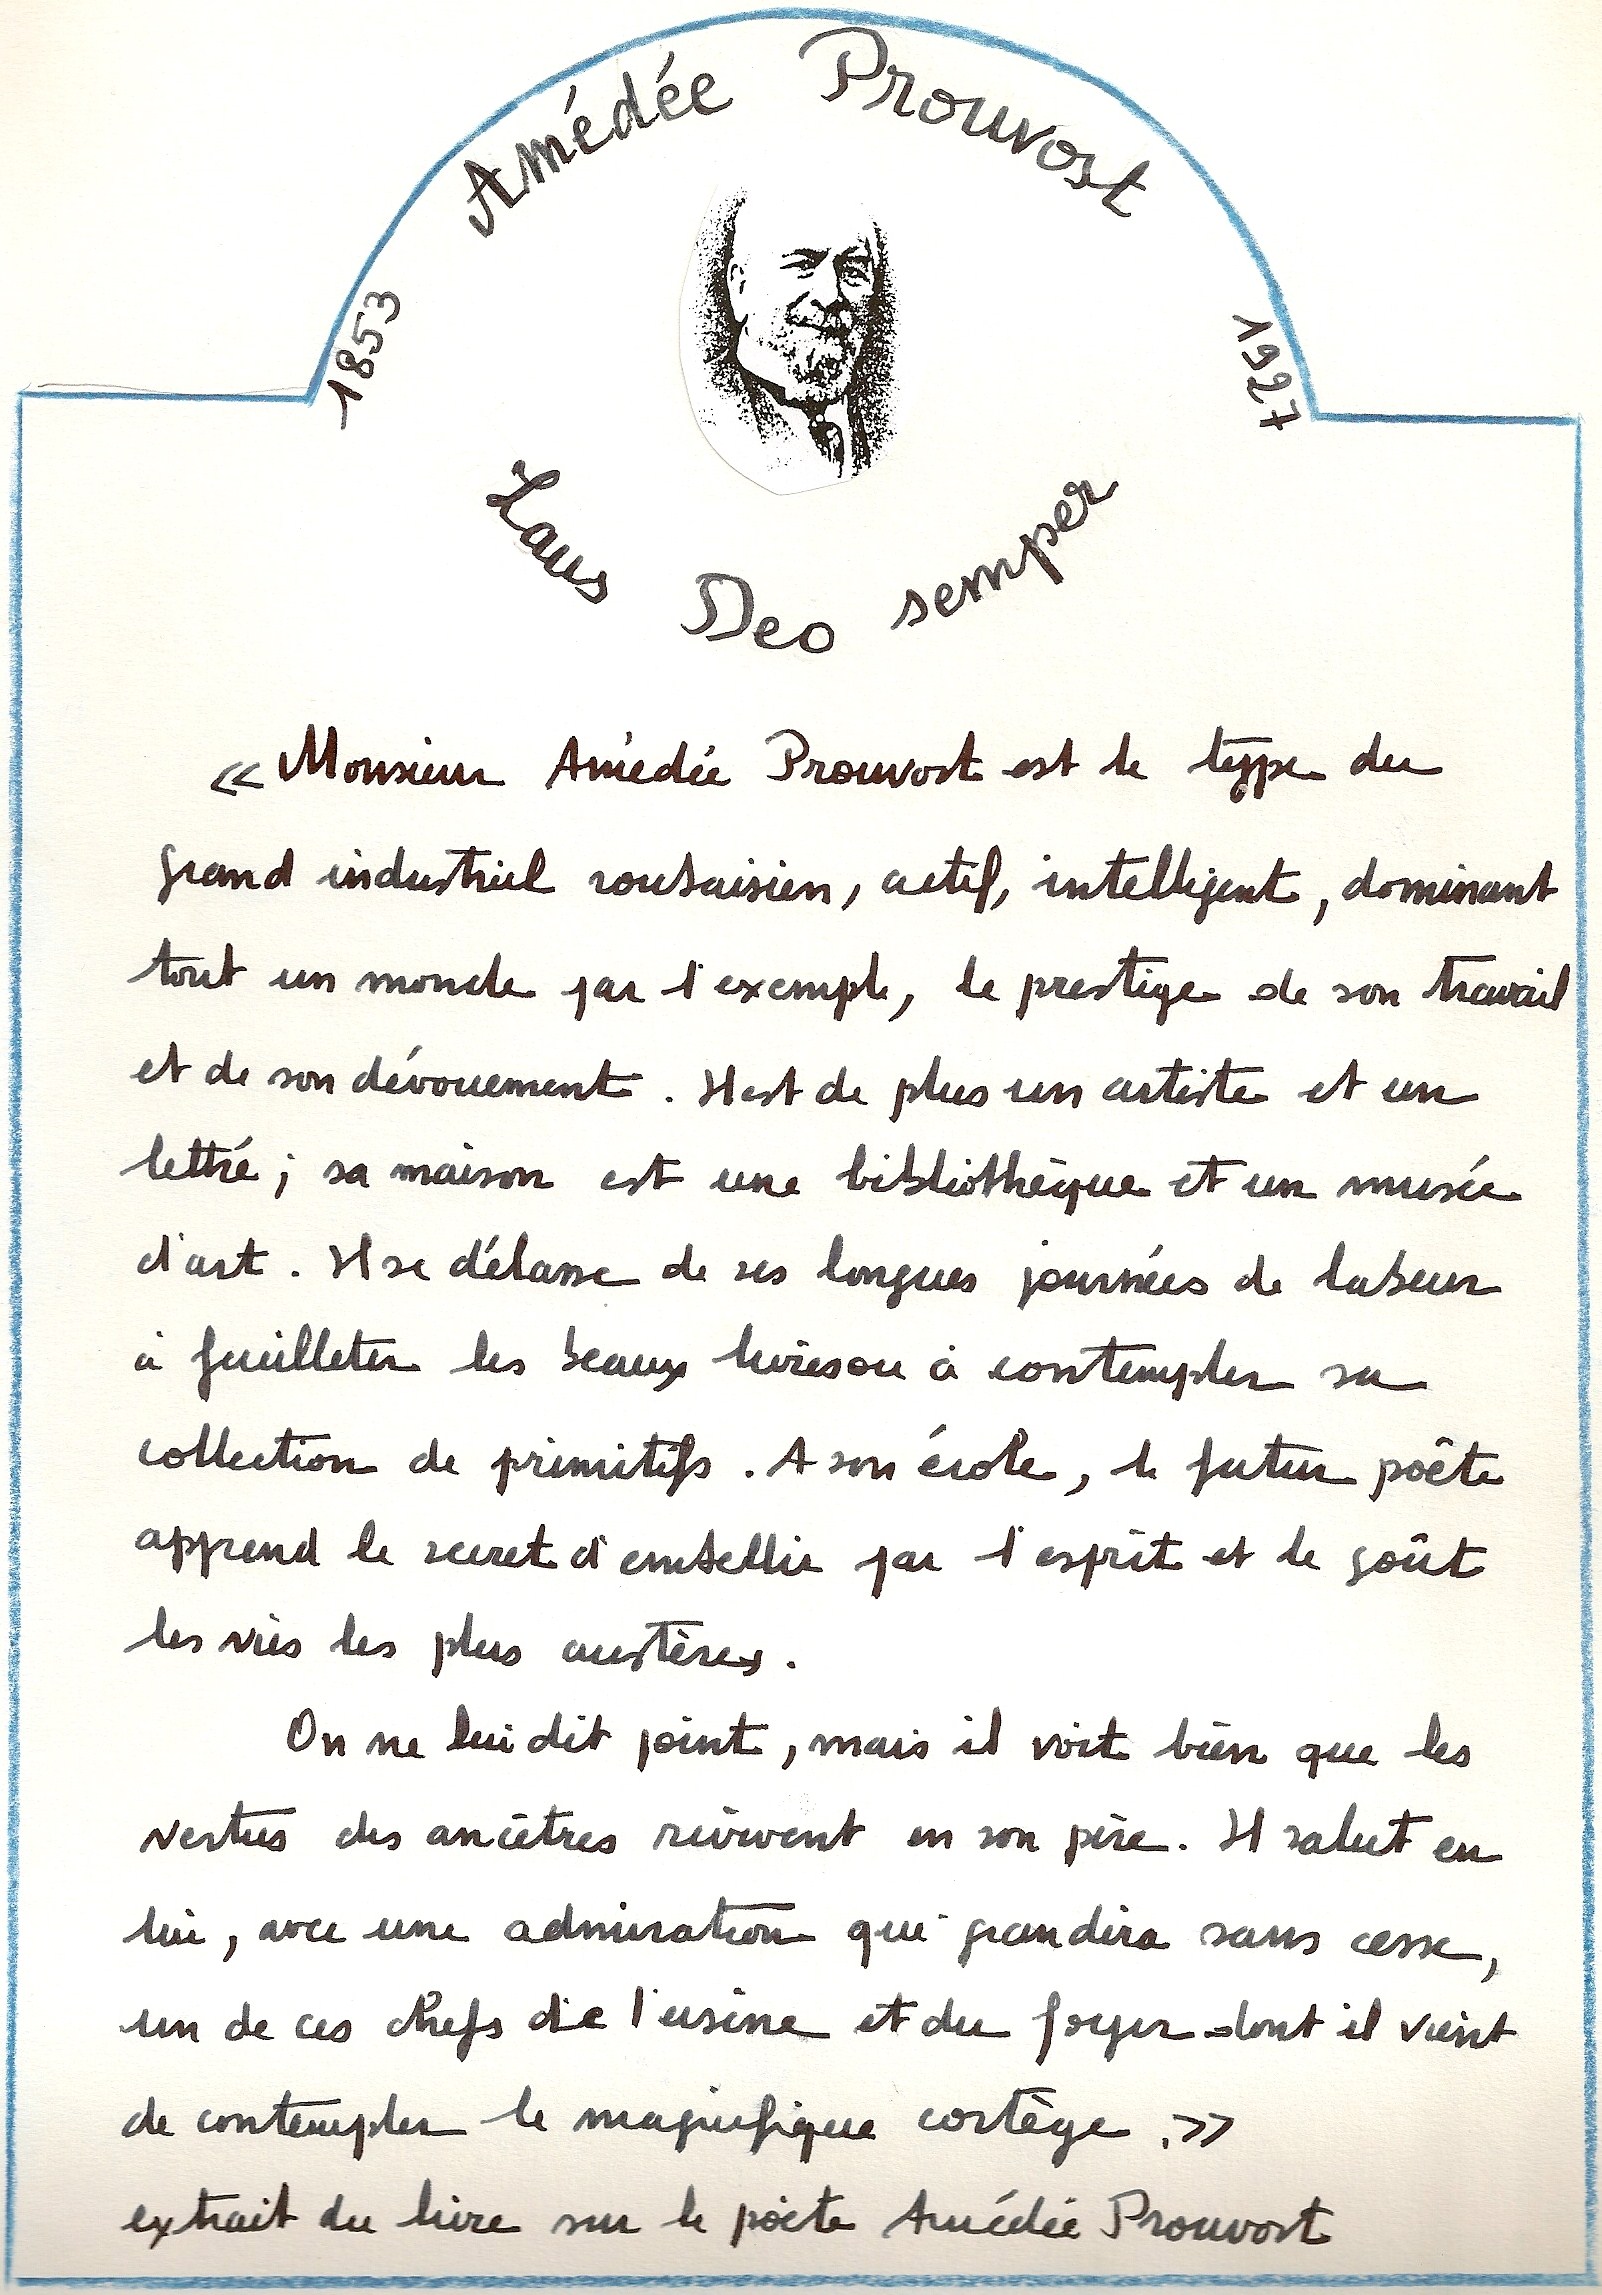 Amédée Prouvost
1853
1927
Laus Deo semper
« Monsieur Amédée Prouvost est le type du
grand industriel roubaisien, actif, intelligent, dominant
tout un monde par l'exemple, le prestige de son travail
et de son dévouement. Il est de plus un artiste et un
lettré ; sa maison est une bibliothèque et un musée
d'art. Il se délasse de ses longues journées de labeur
à feuilleter les beaux livres ou à contempler sa
collection de primitifs. A son école, le futur poête
apprend le secret d'embellir par l'esprit et le goût
les vies les plus austères.
On ne lui dit point, mais il voit bien que les
vertus des ancêtres revivent en son père. Il salut en
lui, avec une admiration qui grandira sans cesse,
un de ces chefs de l'usine et du foyer dont il vient
de contempler le magnifique cortège. »
extrait du livre sur le poète Amédée Prouvost